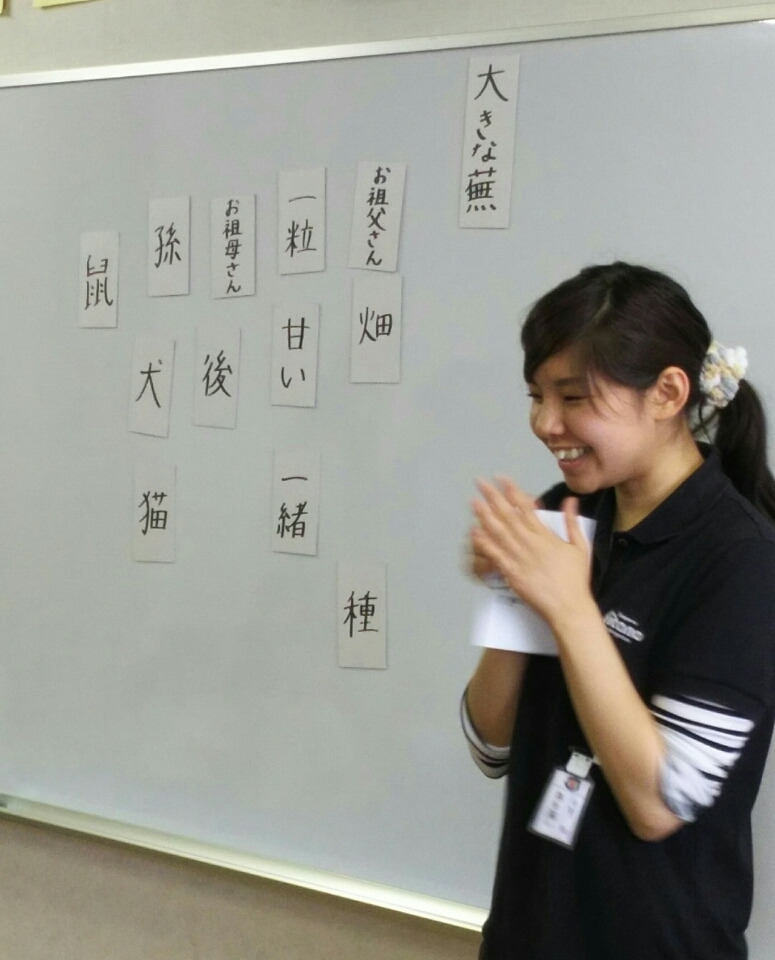 大きな蕪
お祖父さん
畑
種
一粒
甘い
一緒
お祖母さん
後
孫
犬
猫
鼠